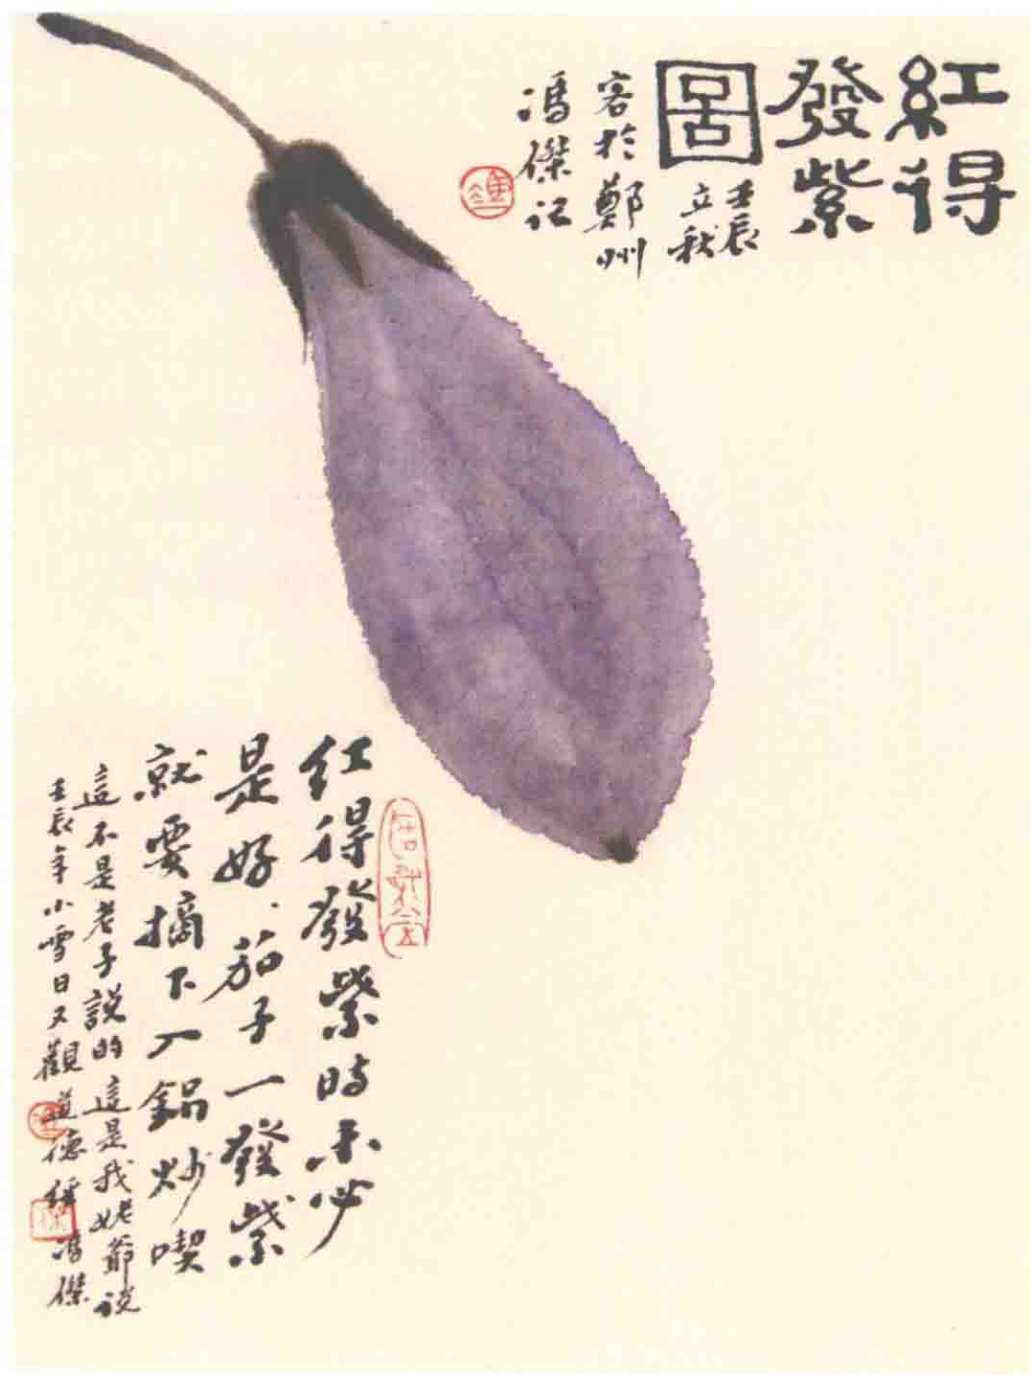 紅得
發紫
圖
壬辰
立秋
客於鄭州
馮傑記
红得發紫時未必
是好、茄子一發紫
就要摘下入鍋炒喫
這不是老子説的這是我姥爺说
壬辰年小雪日又觀道德經馮傑